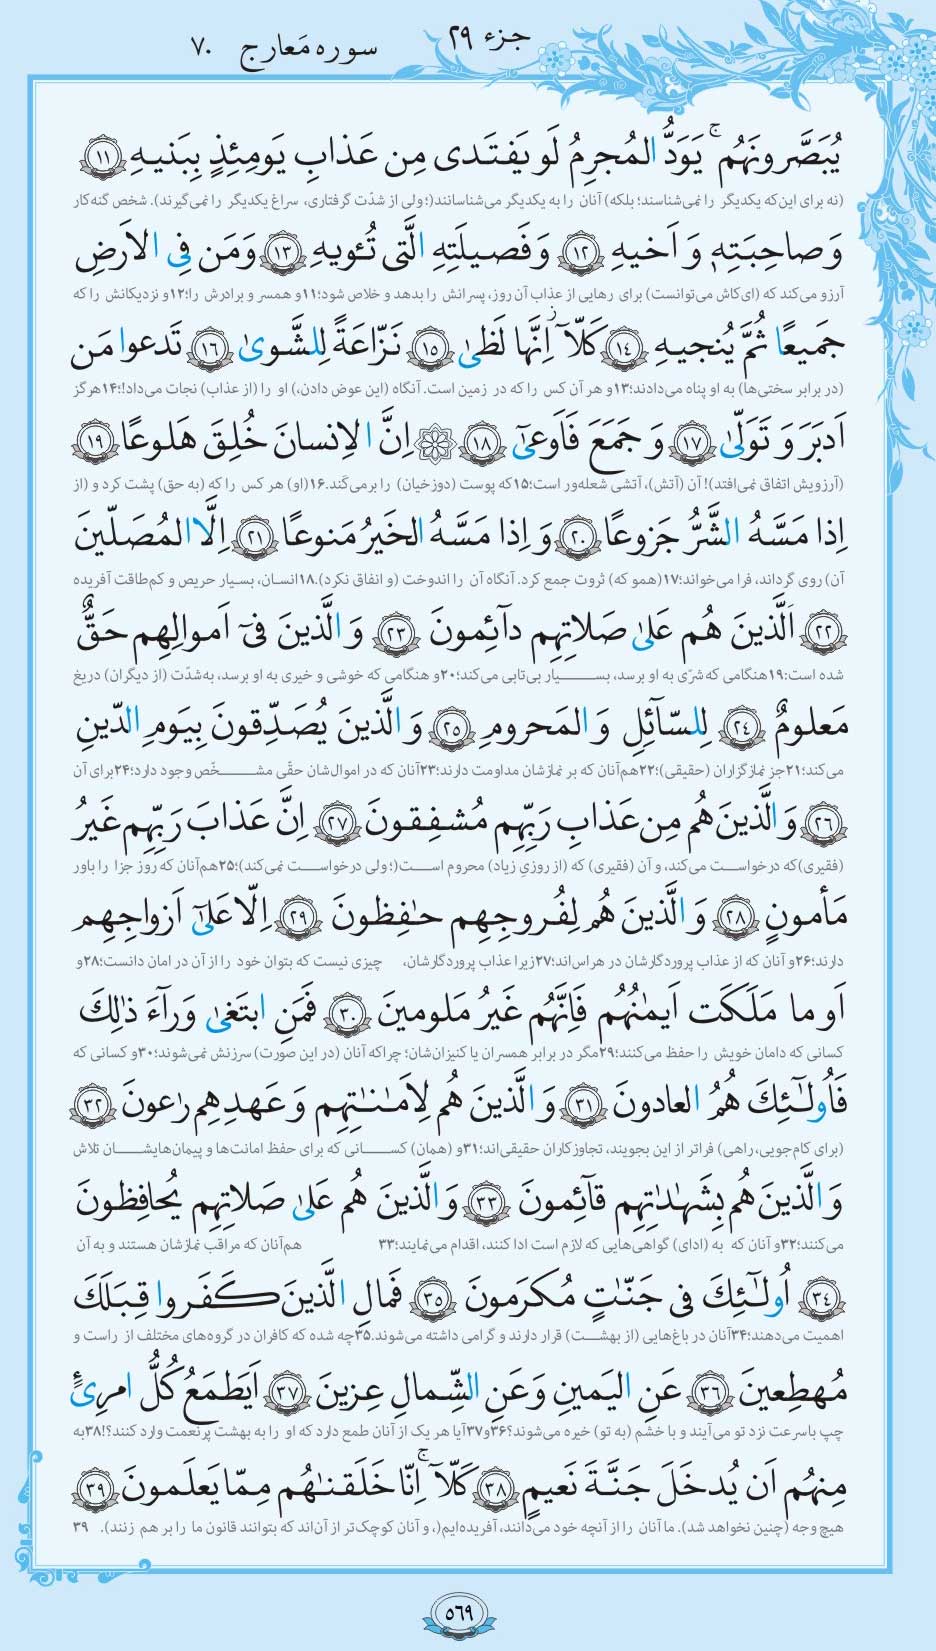 جزء ۲۹
سوره مَعارج ۷۰
يُبَصَّرونَهُم ۚ يَوَدُّ المُجرِمُ لَو يَفتَدى مِن عَذابِ يَومِئِذٍ بِبَنيهِ ﴿۱۱﴾
(نه برای این‌که یکدیگر را نمی‌شناسند؛ بلکه) آنان را به یکدیگر می‌شناسانند(؛ ولی از شدّت گرفتاری، سراغ یکدیگر را نمی‌گیرند). شخص گنه‌کار
وَ صاحِبَتِهٖ وَ اَخيهِ ﴿۱۲﴾ وَ فَصيلَتِهِ الَّتى تُـٔويهِ ﴿۱۳﴾ وَ مَن فِى الاَرضِ
آرزو می‌کند که (ای‌کاش می‌توانست) برای رهایی از عذاب آن روز، پسرانش را بدهد و خلاص شود؛۱۱ و همسر و برادرش را؛۱۲ و نزدیکانش را که
جَميعًا ثُمَّ يُنجيهِ ﴿۱۴﴾ كَلّآ ۖ اِنَّها لَظىٰ ﴿۱۵﴾ نَزّاعَةً لِلشَّوىٰ ﴿۱۶﴾ تَدعوا مَن
(در برابر سختی‌ها) به او پناه می‌دادند؛۱۳ و هر آن کس را که در زمین است. آنگاه (این عوض دادن،) او را (از عذاب) نجات می‌داد!؛۱۴ هرگز
اَدبَرَ وَ تَوَلّىٰ ﴿۱۷﴾ وَ جَمَعَ فَاَوعىٰٓ ﴿۱۸﴾ ۞ اِنَّ الاِنسانَ خُلِقَ هَلوعًا ﴿۱۹﴾
(آرزویش اتفاق نمی‌افتد)! آن (آتش)، آتشی شعله‌ور است؛۱۵ که پوست (دوزخیان) را برمی‌کَند.۱۶ (او) هر کس را که (به حق) پشت کرد و (از
اِذا مَسَّهُ الشَّرُّ جَزوعًا ﴿۲۰﴾ وَ اِذا مَسَّهُ الخَيرُ مَنوعًا ﴿۲۱﴾ اِلَّا المُصَلّينَ
آن) روی گرداند، فرا می‌خواند؛۱۷ (همو که) ثروت جمع کرد. آنگاه آن را اندوخت (و انفاق نکرد).۱۸ انسان، بسیار حریص و کم‌طاقت آفریده
﴿۲۲﴾ اَلَّذينَ هُم عَلىٰ صَلاتِهِم دآئِمونَ ﴿۲۳﴾ وَ الَّذينَ فىٓ اَموالِهِم حَقٌّ
شده است؛۱۹ هنگامی که شرّی به او برسد، بسیار بی‌تابی می‌کند؛۲۰ و هنگامی که خوشی و خیری به او برسد، به‌شدّت (از دیگران) دریغ
مَعلومٌ ﴿۲۴﴾ لِلسّآئِلِ وَ المَحرومِ ﴿۲۵﴾ وَ الَّذينَ يُصَدِّقونَ بِيَومِ الدّينِ
می‌کند؛۲۱ جز نمازگزاران (حقیقی)؛۲۲ هم‌آنان که بر نمازشان مداومت دارند؛۲۳ آنان که در اموال‌شان حقّی مشخّص وجود دارد؛۲۴ برای آن
﴿۲۶﴾ وَ الَّذينَ هُم مِن عَذابِ رَبِّهِم مُشفِقونَ ﴿۲۷﴾ اِنَّ عَذابَ رَبِّهِم غَيرُ
(فقیری) که درخواست می‌کند، و آن (فقیری) که (از روزیِ زیاد) محروم است(؛ ولی درخواست نمی‌کند)؛۲۵ هم‌آنان که روز جزا را باور
مَأمونٍ ﴿۲۸﴾ وَ الَّذينَ هُم لِفُروجِهِم حٰفِظونَ ﴿۲۹﴾ اِلّا عَلىٰٓ اَزواجِهِم
دارند؛۲۶ و آنان که از عذاب پروردگارشان در هراس‌اند؛۲۷ زیرا عذاب پروردگارشان، چیزی نیست که بتوان خود را از آن در امان دانست؛۲۸ و
اَو ما مَلَكَت اَيمٰنُهُم فَاِنَّهُم غَيرُ مَلومينَ ﴿۳۰﴾ فَمَنِ ابتَغىٰ وَرآءَ ذٰلِكَ
کسانی که دامان خویش را حفظ می‌کنند؛۲۹ مگر در برابر همسران یا کنیزان‌شان؛ چراکه آنان (در این صورت) سرزنش نمی‌شوند؛۳۰ و کسانی که
فَاُولٰٓئِكَ هُمُ العادونَ ﴿۳۱﴾ وَ الَّذينَ هُم لِاَمٰنٰتِهِم وَ عَهدِهِم رٰعونَ ﴿۳۲﴾
(برای کام‌جویی، راهی) فراتر از این بجویند، تجاوزکاران حقیقی‌اند؛۳۱ و (همان) کسانی که برای حفظ امانت‌ها و پیمان‌هایشان تلاش
وَ الَّذينَ هُم بِشَهٰدٰتِهِم قآئِمونَ ﴿۳۳﴾ وَ الَّذينَ هُم عَلىٰ صَلاتِهِم يُحافِظونَ
می‌کنند؛۳۲ و آنان که به (ادای) گواهی‌هایی که لازم است ادا کنند، اقدام می‌نمایند؛۳۳ هم‌آنان که مراقب نمازشان هستند و به آن
﴿۳۴﴾ اُولٰٓئِكَ فى جَنّٰتٍ مُكرَمونَ ﴿۳۵﴾ فَمالِ الَّذينَ كَفَروا قِبَلَكَ
اهمیت می‌دهند؛۳۴ آنان در باغ‌هایی (از بهشت) قرار دارند و گرامی داشته می‌شوند.۳۵ چه شده که کافران در گروه‌های مختلف از راست و
مُهطِعينَ ﴿۳۶﴾ عَنِ اليَمينِ وَ عَنِ الشِّمالِ عِزينَ ﴿۳۷﴾ اَيَطمَعُ كُلُّ امرِئٍ
چپ با سرعت نزد تو می‌آیند و با خشم (به تو) خیره می‌شوند؟۳۶ و۳۷ آیا هر یک از آنان طمع دارد که او را به بهشت پرنعمت وارد کنند؟!۳۸ به
مِنهُم اَن يُدخَلَ جَنَّةَ نَعيمٍ ﴿۳۸﴾ كَلّآ ۚ اِنّا خَلَقنٰهُم مِمّا يَعلَمونَ ﴿۳۹﴾
هیچ وجه (چنین نخواهد شد). ما آنان را از آنچه خود می‌دانند، آفریده‌ایم(، و آنان کوچک‌تر از آن‌اند که بتوانند قانون ما را بر هم زنند). ۳۹
۵۶۹